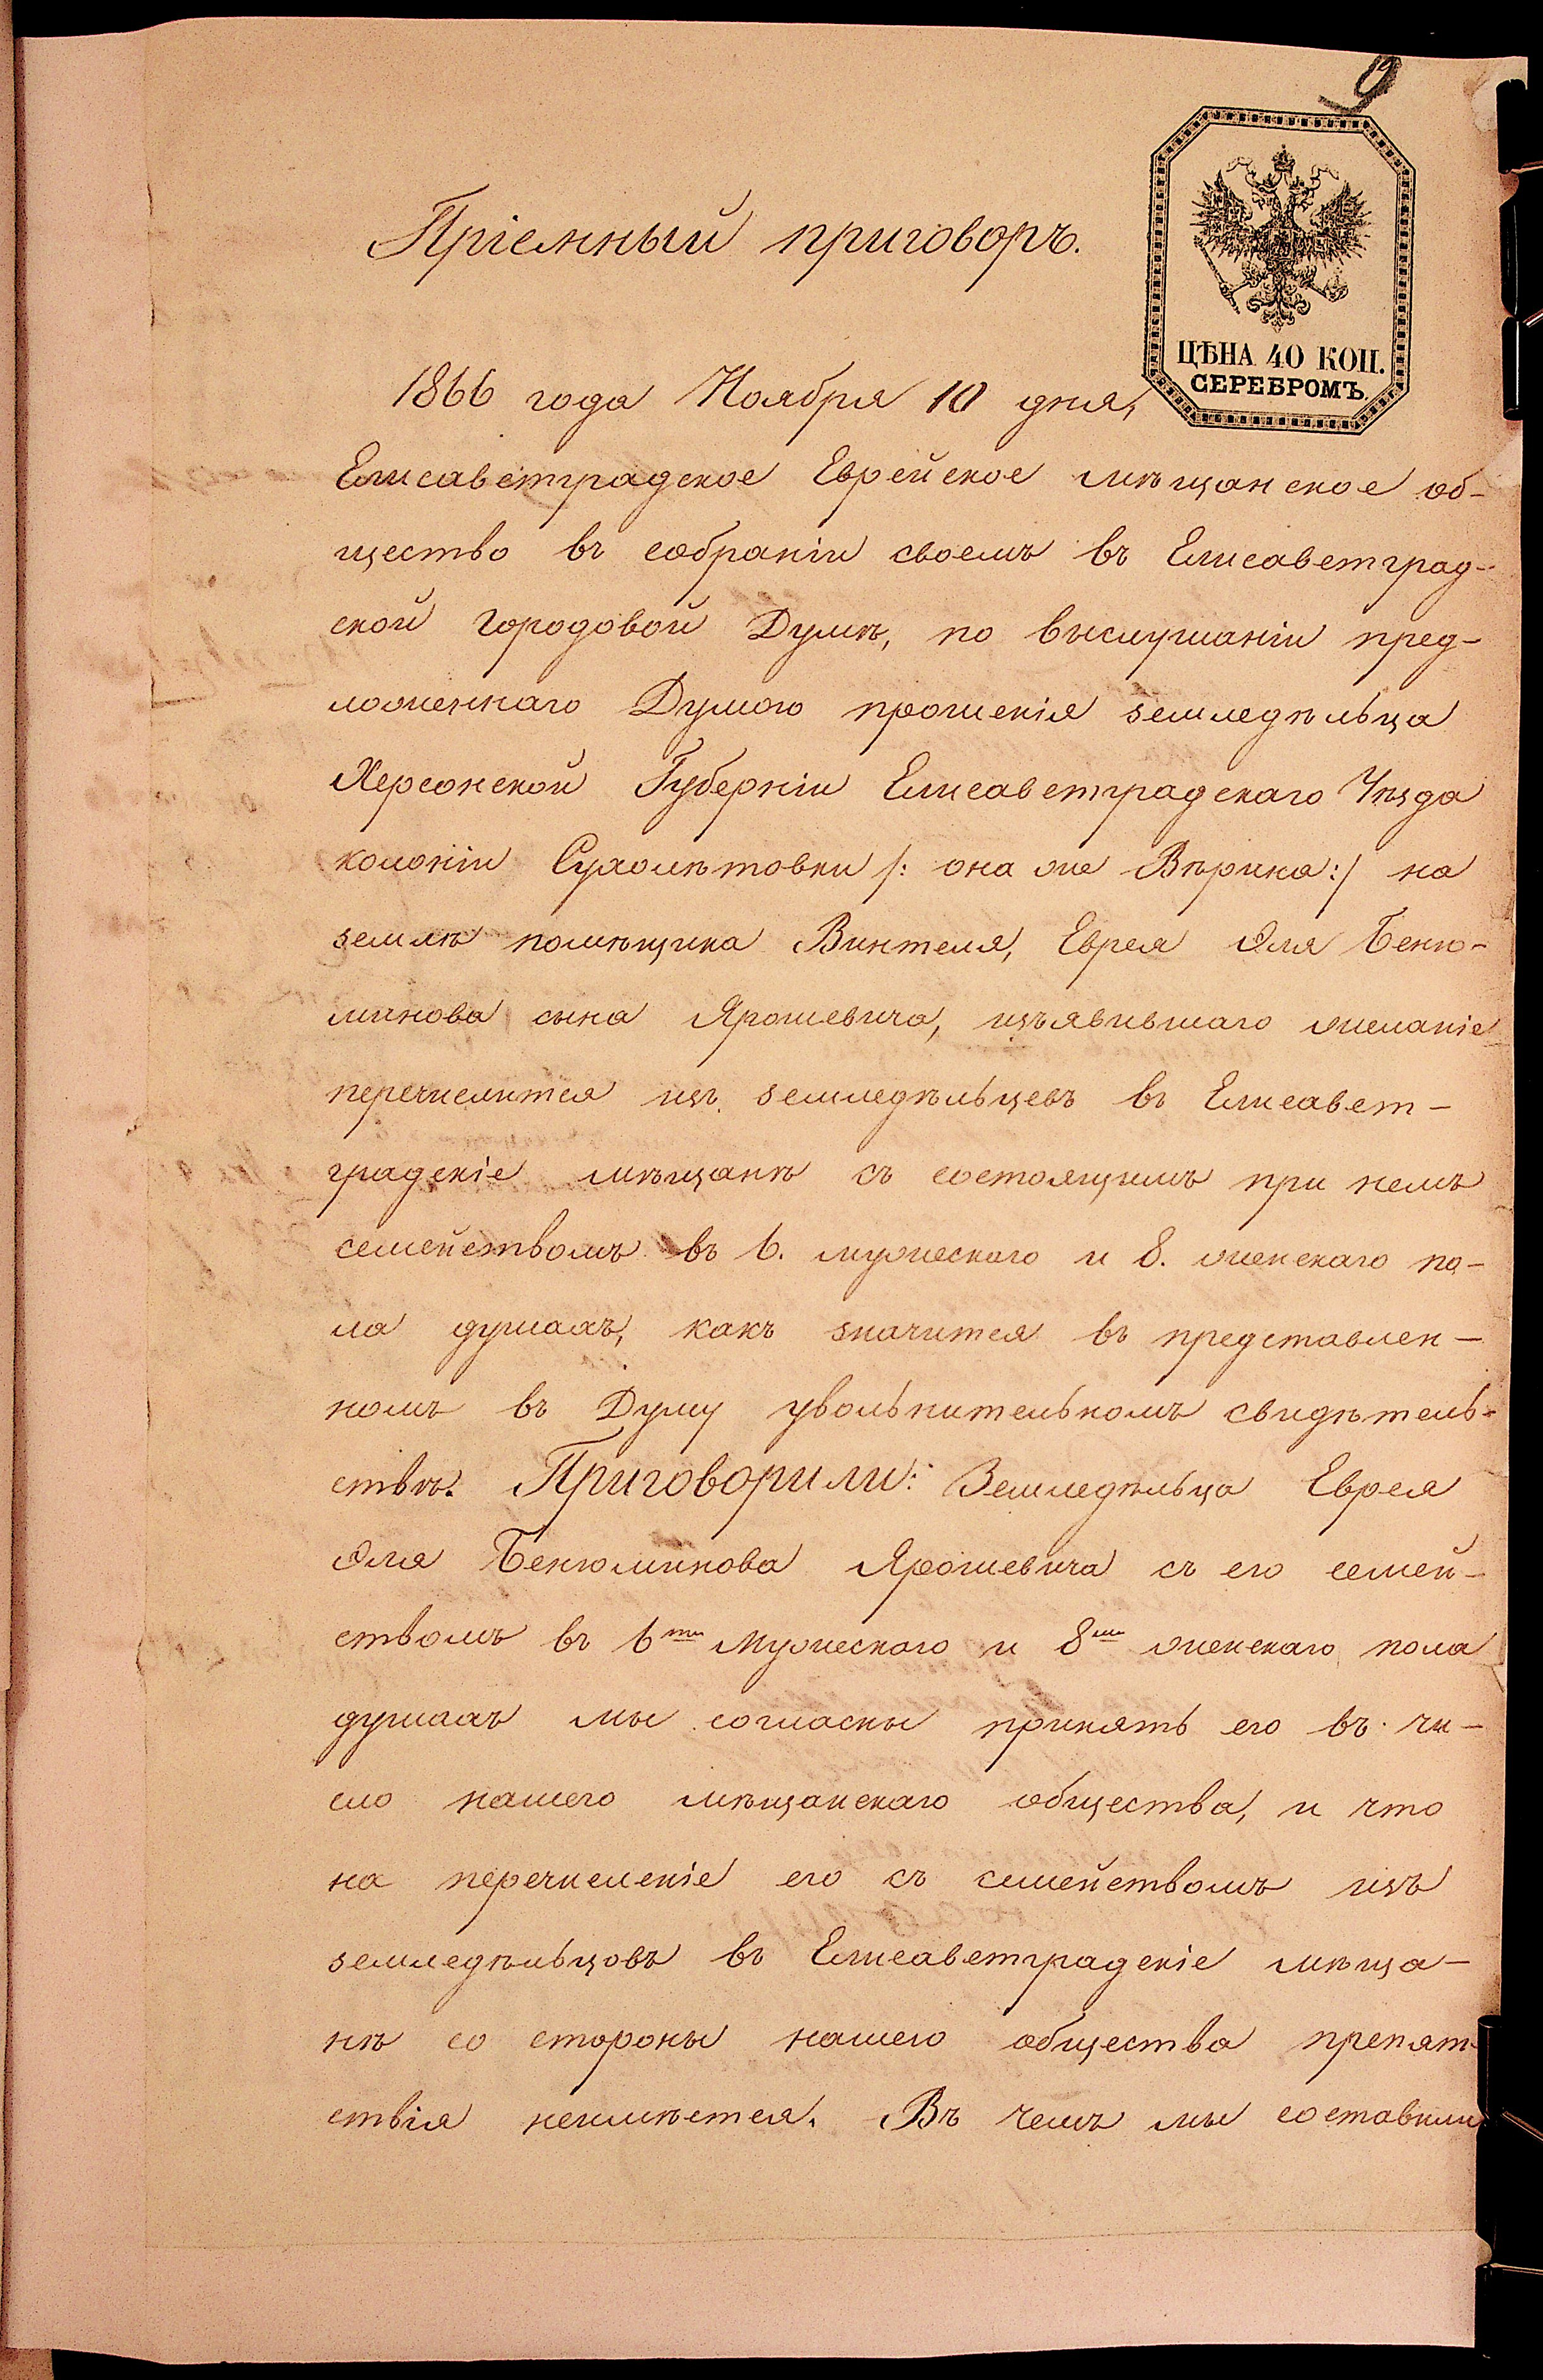 9
Пріемный приговоръ.
ЦѢНА 40 КОП.
СЕРЕБРОМЪ.
1866 года Ноября 10 дня,
Елисаветградское Еврейское мѣщанское об-
щество въ собраніи своемъ въ Елисаветград-
ской Городовой Думѣ, по выслушаніи пред-
ложеннаго Думою прошенія земледѣльца
Херсонской Губерніи Елисаветградскаго Уѣзда
колоніи Сухолѣтовки /: она же Вѣрина:/ на
землѣ помѣщика Винтеля, Еврея Эля Беню-
минова сына Ярошевича, изъявившаго желаніе
перечислится изъ земледѣльцевъ въ Елисавет-
градскіе мѣщанѣ съ состоящимъ при немъ
семействомъ въ 6. мужескаго и 8. женскаго по-
ла душахъ, какъ значится въ представлен-
номъ въ Думу увольнительномъ свидѣтель-
ствѣ. Приговорили: Земледѣльца Еврея
Эля Бенюминова Ярошевича съ его семей-
ствомъ въ 6ти Мужескаго и 8ми женскаго пола
душахъ мы согласны принять его въ чи-
сло нашего мѣщанскаго общества, и что
на перечисленіе его съ семействомъ изъ
земледѣльцовъ въ Елисаветградскіе мѣща-
нѣ со стороны нашего общества препят-
ствія неимѣется. Въ чемъ мы составили